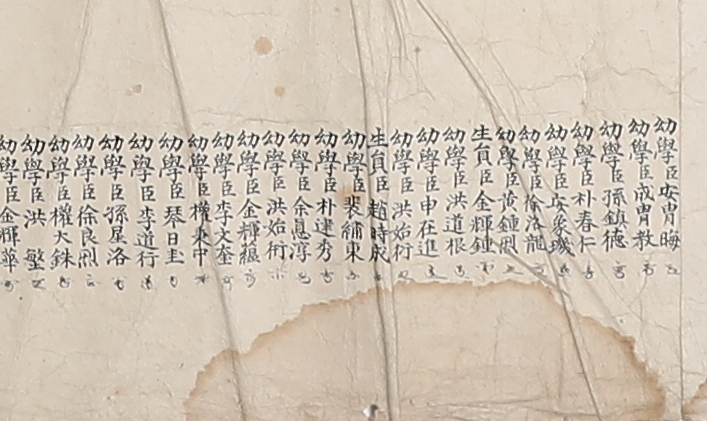 幼學臣安胄晦
幼學臣成胄教
幼學臣孫鎮德
幼學臣朴春仁
幼學臣安象璣
幼學臣徐洛龍
幼學臣黃鍾烈
生員臣金輝鍾
幼學臣洪道根
幼學臣申在進
幼學臣洪始衍
生員臣趙時成
幼學臣裴繡東
幼學臣朴達秀
幼學臣余息淳
幼學臣洪始衍
幼學臣金輝蘊
幼學臣李文奎
幼學臣權秉中
幼學臣琴日圭
幼學臣李道行
幼學臣孫星洛
幼學臣徐良烈
幼學臣權大銖
幼學臣洪 墼
幼學臣金輝華